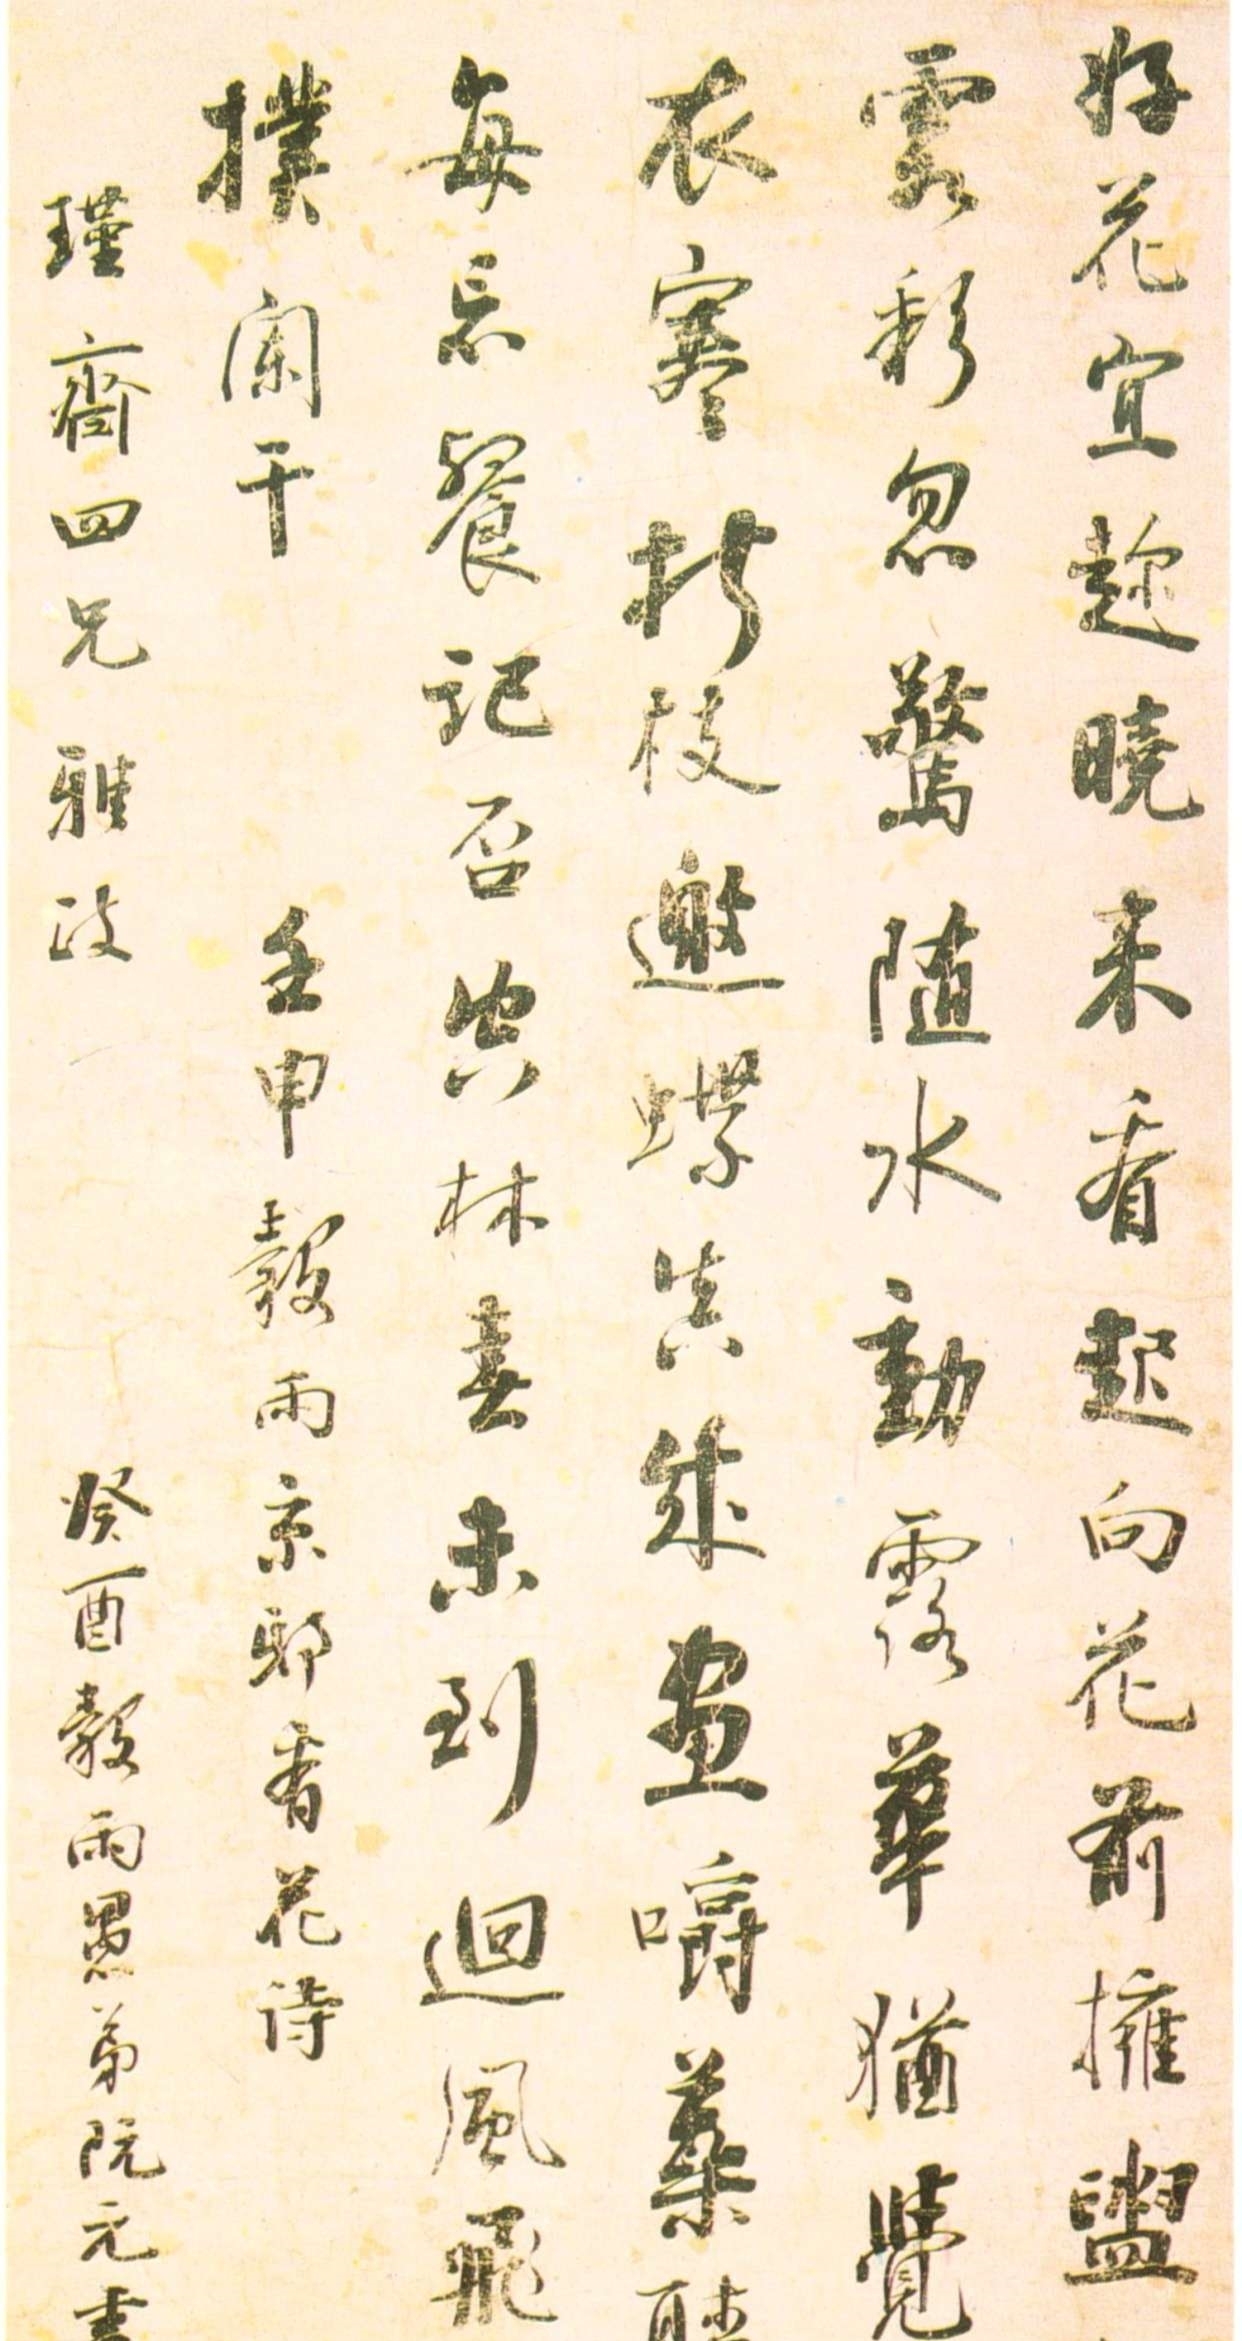 好花宜趂曉来看起向花前擁盥
霞彩忽驚隨水動露華猶覺
衣寒折枝邀蝶真成畫嚼蘂
每忘餐記否空林春未到迴風飛
撲闌干
壬申穀雨京邸看花詩
瑾齋四兄雅政
癸酉穀雨愚弟阮元書